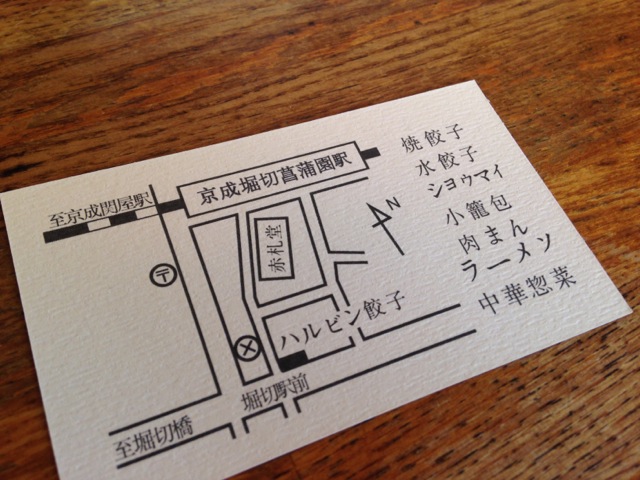 京成堀切菖蒲園駅
至京成関屋駅
赤札堂
〒
ハルビン餃子
堀切駅前
至堀切橋
N
焼餃子
水餃子
シヨウマイ
小籠包
肉まん
ラーメン
中華惣菜